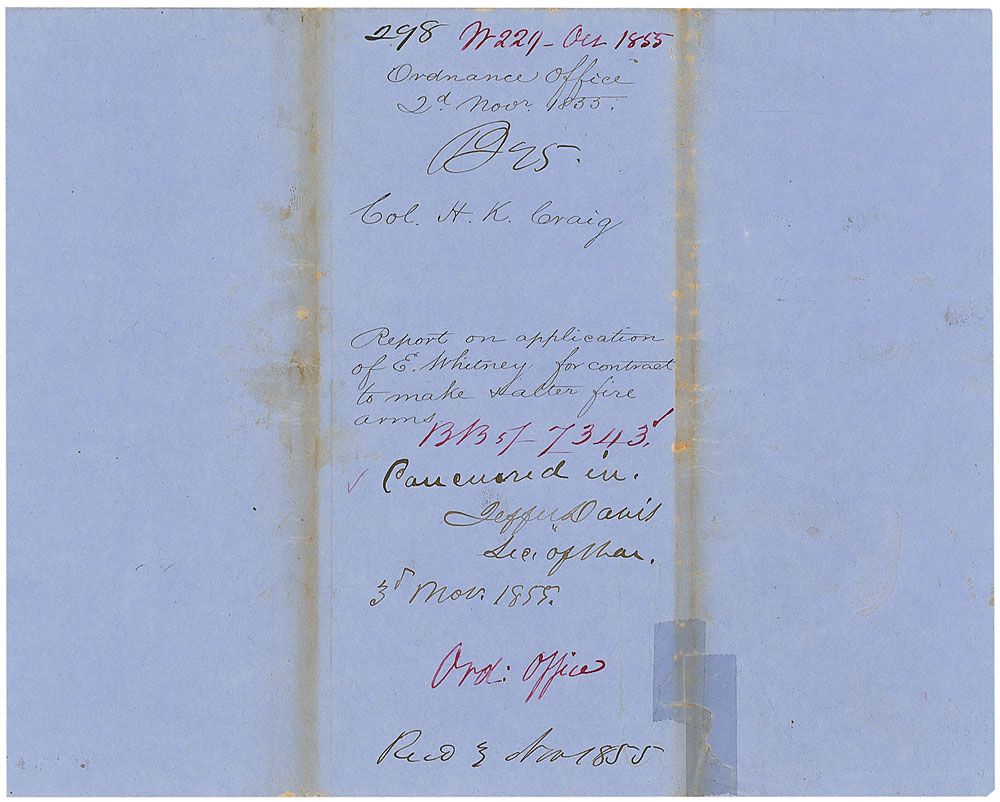 298 W229 - Oct 1855
Ordnance Office
2d Novr. 1855.
Col. H. K. Craig
Report on application
of E. Whitney for contract
to make & alter fire
arms.
7343
Concurred in.
Jeffer Davis
Sec. of War.
3d Nov. 1855.
Ord: Office
Recd 3 Nov 1855